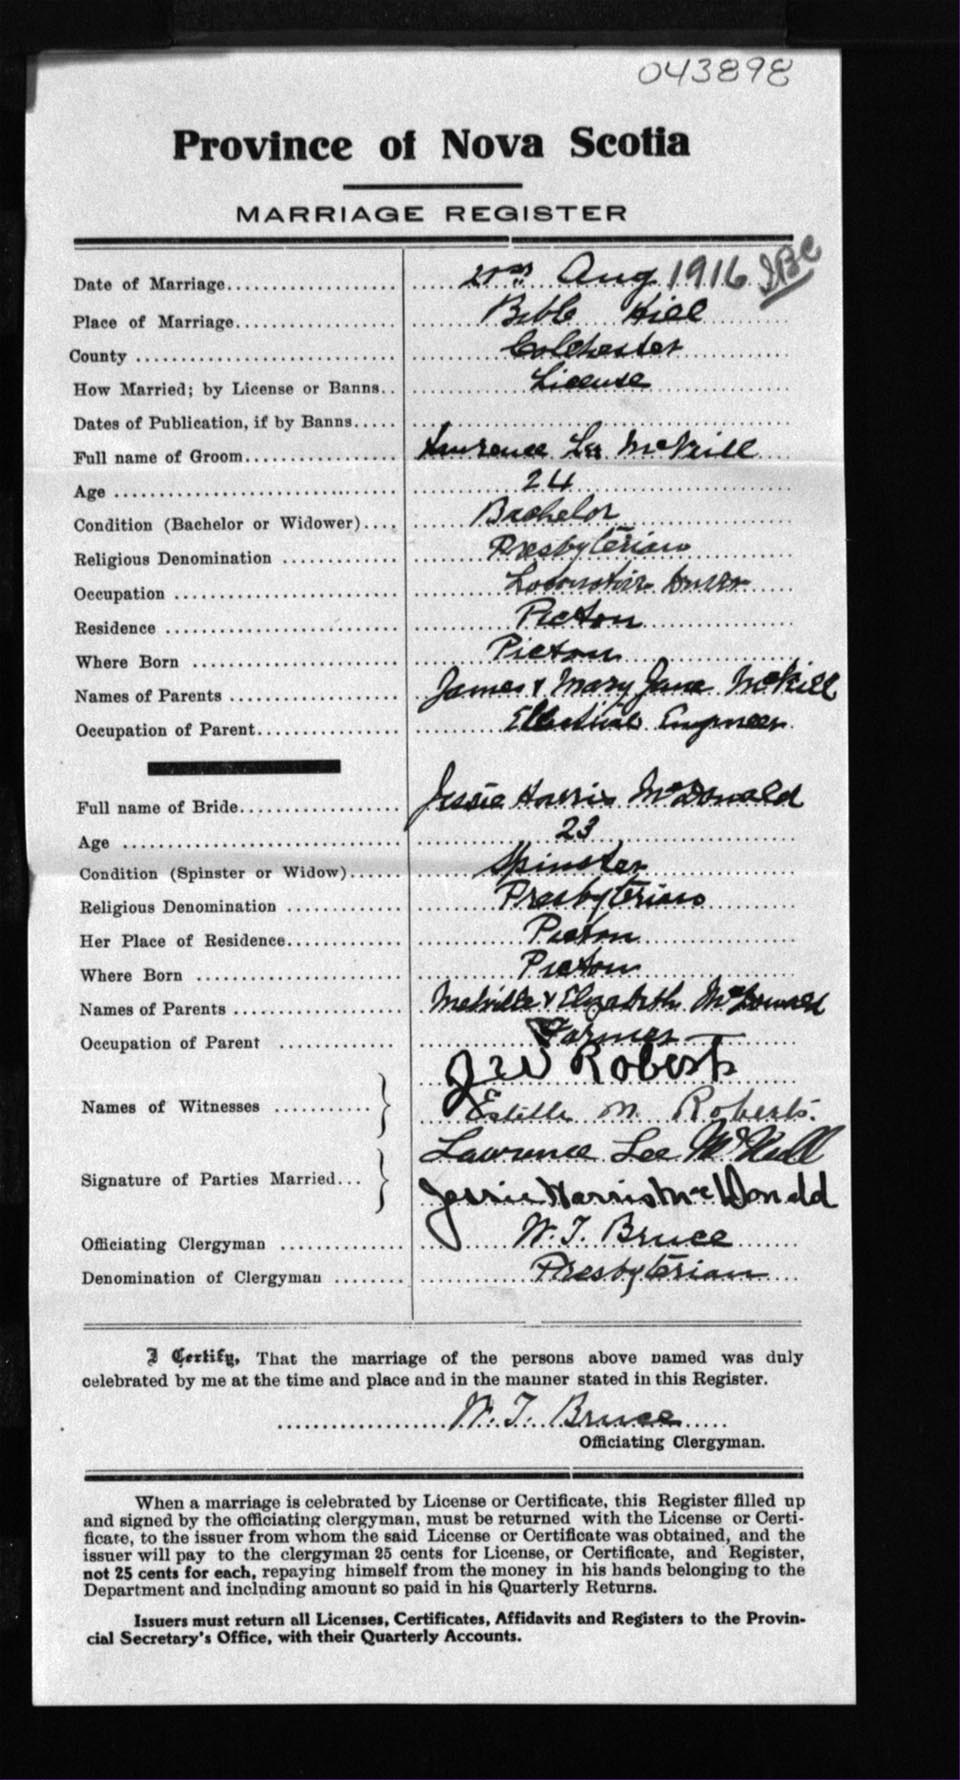 043898
Province of Nova Scotia
MARRIAGE REGISTER
Date of Marriage 21st Aug 1916
Place of Marriage Bible Hill
County Colchester
How Married; by License or Banns License
Dates of Publication, if by Banns
Full name of Groom Lawrence Lee McNeill
Age 24
Condition (Bachelor or Widower) Bachelor
Religious Denomination Presbyterian
Occupation Locomotive Driver
Residence Pictou
Where Born Pictou
Names of Parents James & Mary Jane McNeill
Occupation of Parent Electrical Engineer
Full name of Bride Jessie Harris McDonald
Age 23
Condition (Spinster or Widow) Spinster
Religious Denomination Presbyterian
Her Place of Residence Pictou
Where Born Pictou
Names of Parents Melville & Elizabeth McDonald
Occupation of Parent Farmer
J W Roberts
Names of Witnesses Estelle M Roberts.
Lawrence Lee McNeill
Signature of Parties Married Jessie Harris McDonald
Officiating Clergyman W. T. Bruce
Denomination of Clergyman Presbyterian
I Certify, That the marriage of the persons above named was duly
celebrated by me at the time and place and in the manner stated in this Register.
W. T. Bruce
Officiating Clergyman.
When a marriage is celebrated by License or Certificate, this Register filled up
and signed by the officiating clergyman, must be returned with the License or Certi-
ficate, to the issuer from whom the said License or Certificate was obtained, and the
issuer will pay to the clergyman 25 cents for License, or Certificate, and Register,
not 25 cents for each, repaying himself from the money in his hands belonging to the
Department and including amount so paid in his Quarterly Returns.
Issuers must return all Licenses, Certificates, Affidavits and Registers to the Provin-
cial Secretary's Office, with their Quarterly Accounts.